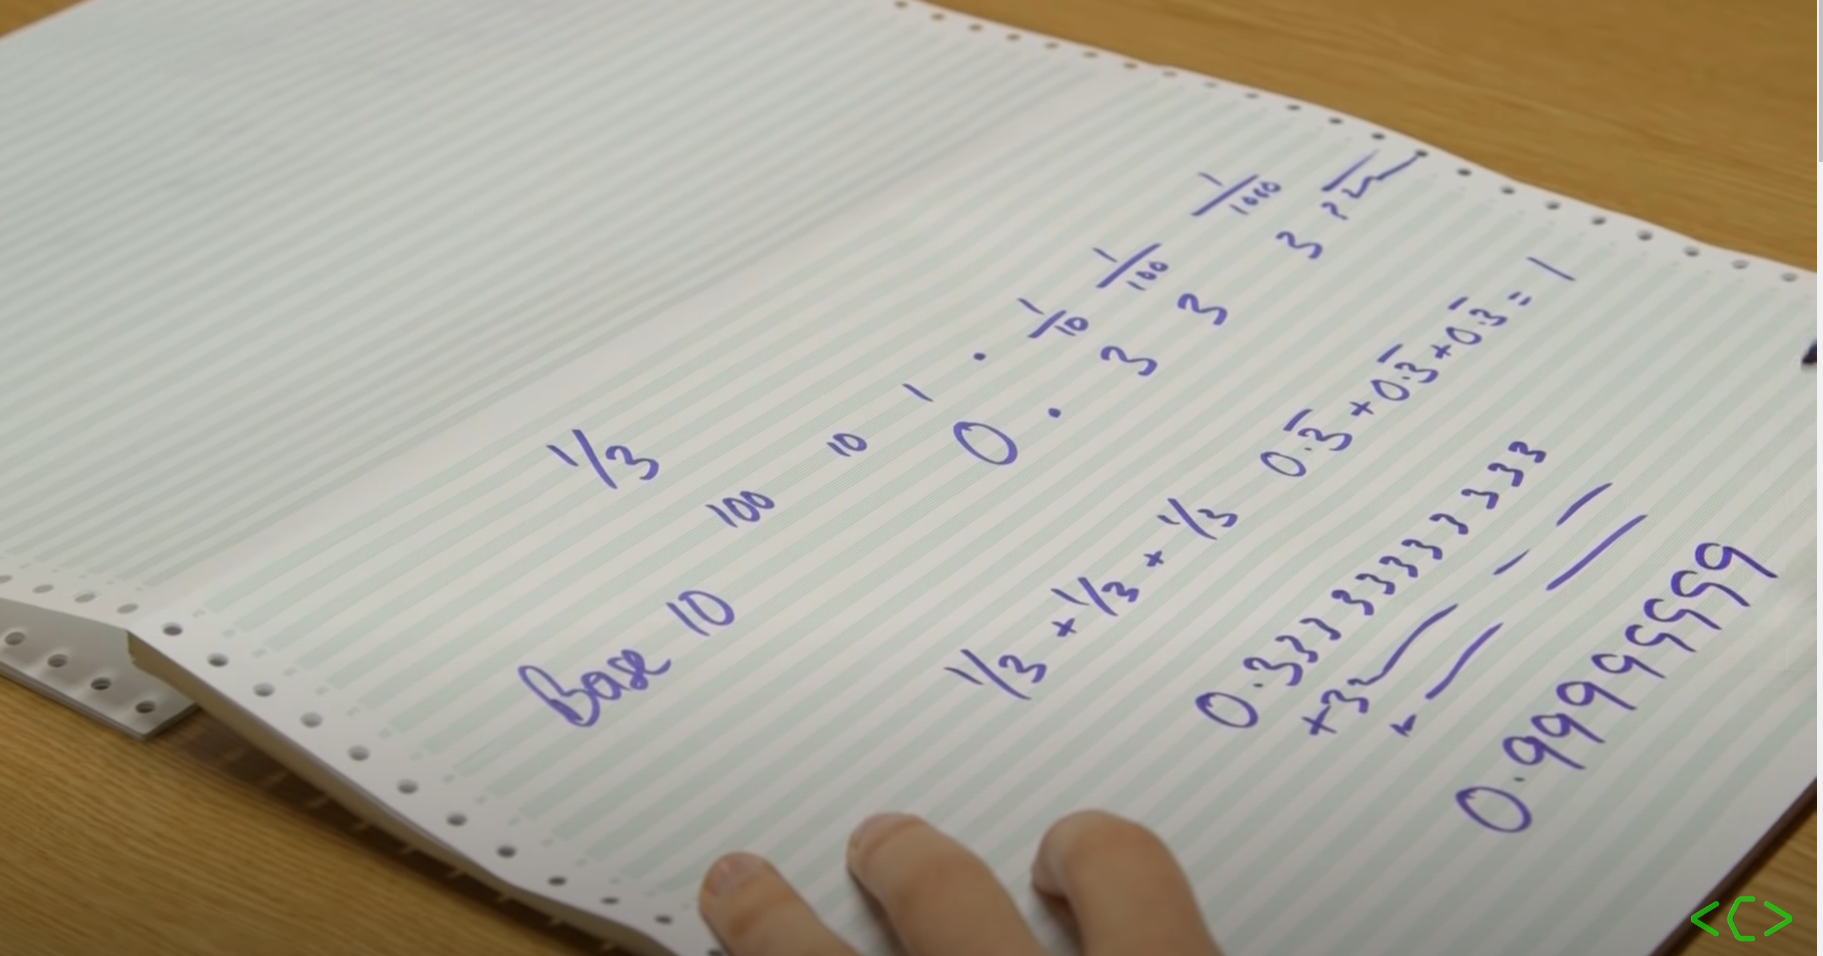 1/3
Base 10
100 10 1 . 1/10 1/100 1/1000
0 . 3 3 3
1/3 + 1/3 + 1/3 0.3̅ + 0.3̅ + 0.3̅ = 1
0.333333333333
+3
+
0.99999999
<C>